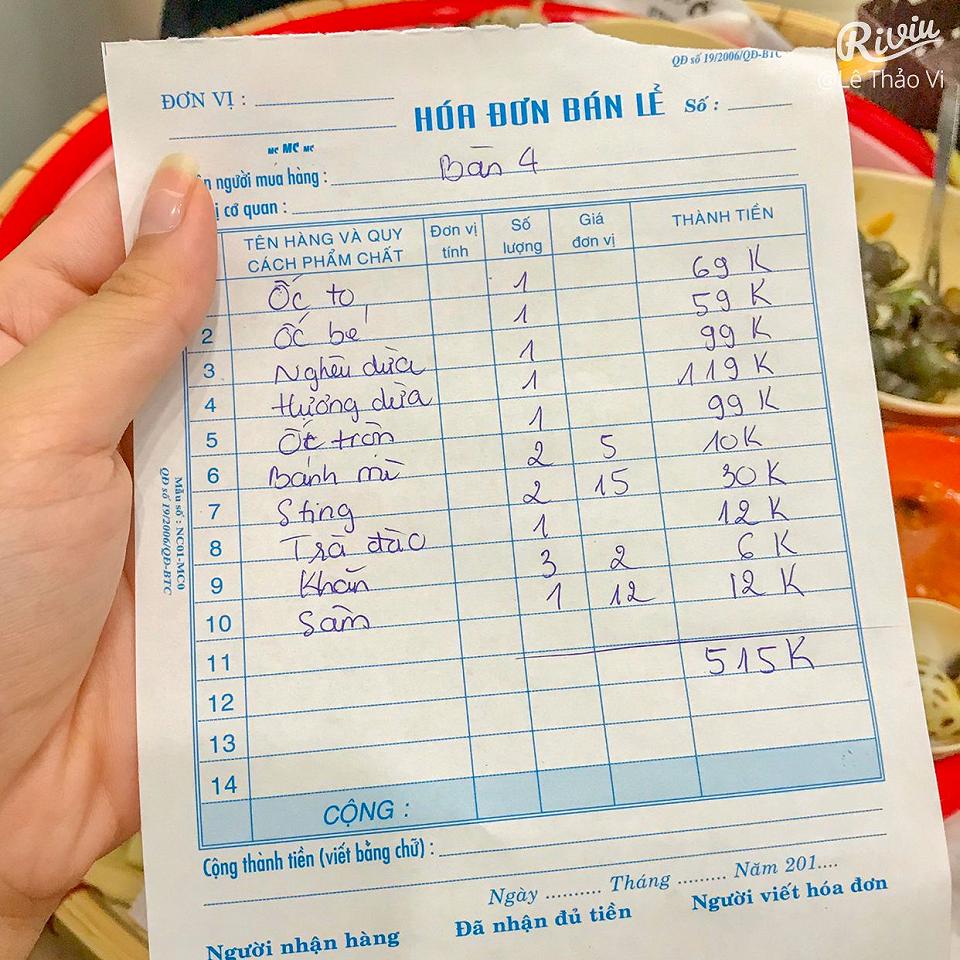 Riviu
@Lê Thảo Vi
QĐ số 19/2006/QĐ-BTC
ĐƠN VỊ :
HÓA ĐƠN BÁN LẺ Số :
MC MC MC
người mua hàng : Bàn 4
cơ quan :
TÊN HÀNG VÀ QUY CÁCH PHẨM CHẤT Đơn vị tính Số lượng Giá đơn vị THÀNH TIỀN
Ốc to 1 69 K
2 Ốc bé 1 59 K
3 Nghêu dừa 1 99 K
4 Hương dừa 1 119 K
5 Ốc trộn 1 99 K
6 Bánh mì 2 5 10K
7 Sting 2 15 30K
8 Trà đào 1 12 K
9 Khăn 3 2 6 K
10 Sâm 1 12 12 K
11 515 K
12
13
14
CỘNG :
Cộng thành tiền (viết bằng chữ) :
Ngày .......... Tháng ......... Năm 201....
Người nhận hàng Đã nhận đủ tiền Người viết hóa đơn
Mẫu số : NC01-MC0
QĐ số 19/2006/QĐ-BTC